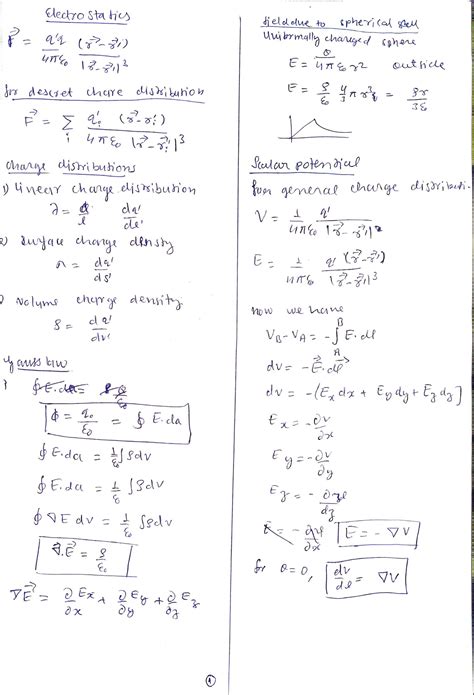 Electrostatics
F⃗ = q'q / 4πε₀ (r⃗ - r⃗') / |r⃗ - r⃗'|³
for descret chare distribution
F⃗ = Σᵢ q'ᵢ / 4πε₀ (r⃗ - r⃗ᵢ') / |r⃗ - r⃗ᵢ'|³
charge distributions
1) linear charge distribution
λ = Q/l dq'/dl'
2) surface charge density
σ = dq'/ds'
volume charge density
ρ = dq'/dv'
Gauss law
∮E.da =
ϕ = q₀/ε₀ = ∮ E.da
∮ E.da = 1/ε₀ ∫ ρdv
∮ E.da = 1/ε₀ ∫ ρdv
∮ ∇E dv = 1/ε₀ ∫ ρdv
∇.E⃗ = ρ/ε₀
∇E⃗ = ∂/∂x Ex + ∂/∂y Ey + ∂/∂z Ez
field due to spherical shell
Uniformally charged sphere
E = Q / 4πε₀r² outside
E = ρ/ε 4/3 πr³ = ρr/3ε
Scalar potential
for general charge distributi-
V = 1/4πε₀ q' / |r⃗ - r⃗'|²
E = 1/4πε₀ q' (r⃗ - r⃗') / |r⃗ - r⃗'|³
now we have
V_B - V_A = -∫_A^B E.dl
dv = -E⃗.dl⃗
dv = -(Ex dx + Ey dy + Ez dz)
Ex = -∂v/∂x
Ey = -∂v/∂y
Ez = -
E = - E = -∇V
for θ = 0, dv/dl = ∇V
1